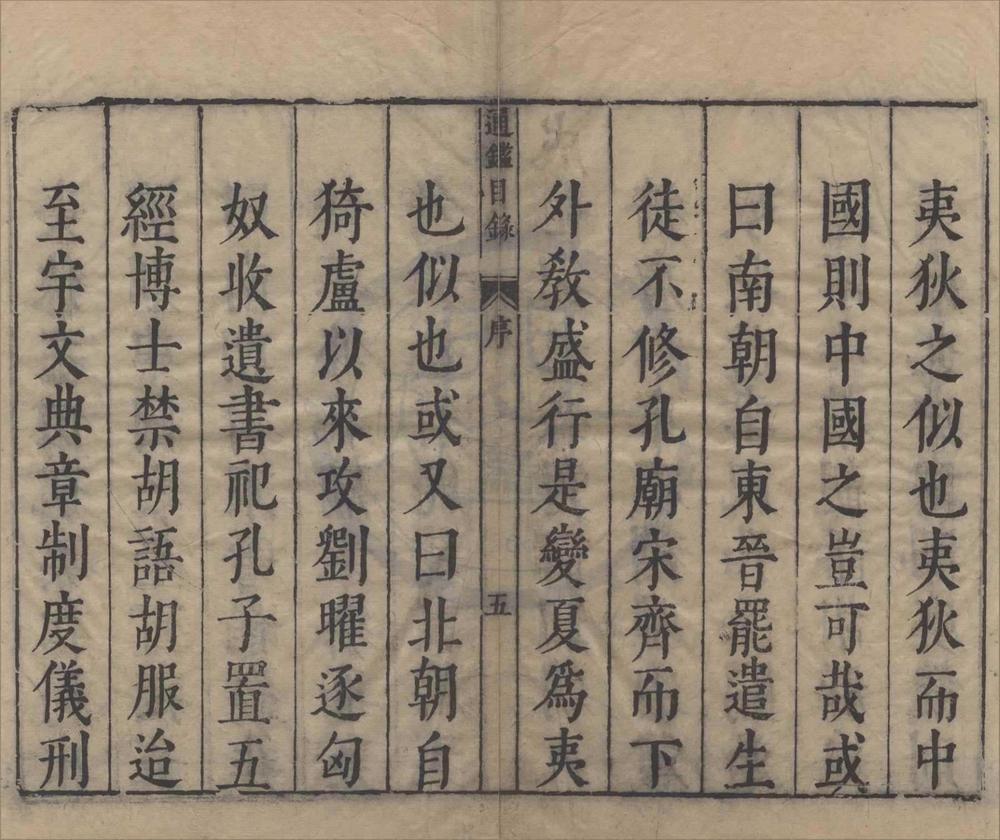 夷狄之似也夷狄而中
國則中國之豈可哉或
曰南朝自東晉罷遣生
徒不修孔廟宋齊而下
外敎盛行是變夏爲夷
通鑑目錄 序 五
也似也或又曰北朝自
猗盧以來攻劉曜逐匈
奴收遺書祀孔子置五
經博士禁胡語胡服迨
至宇文典章制度儀刑